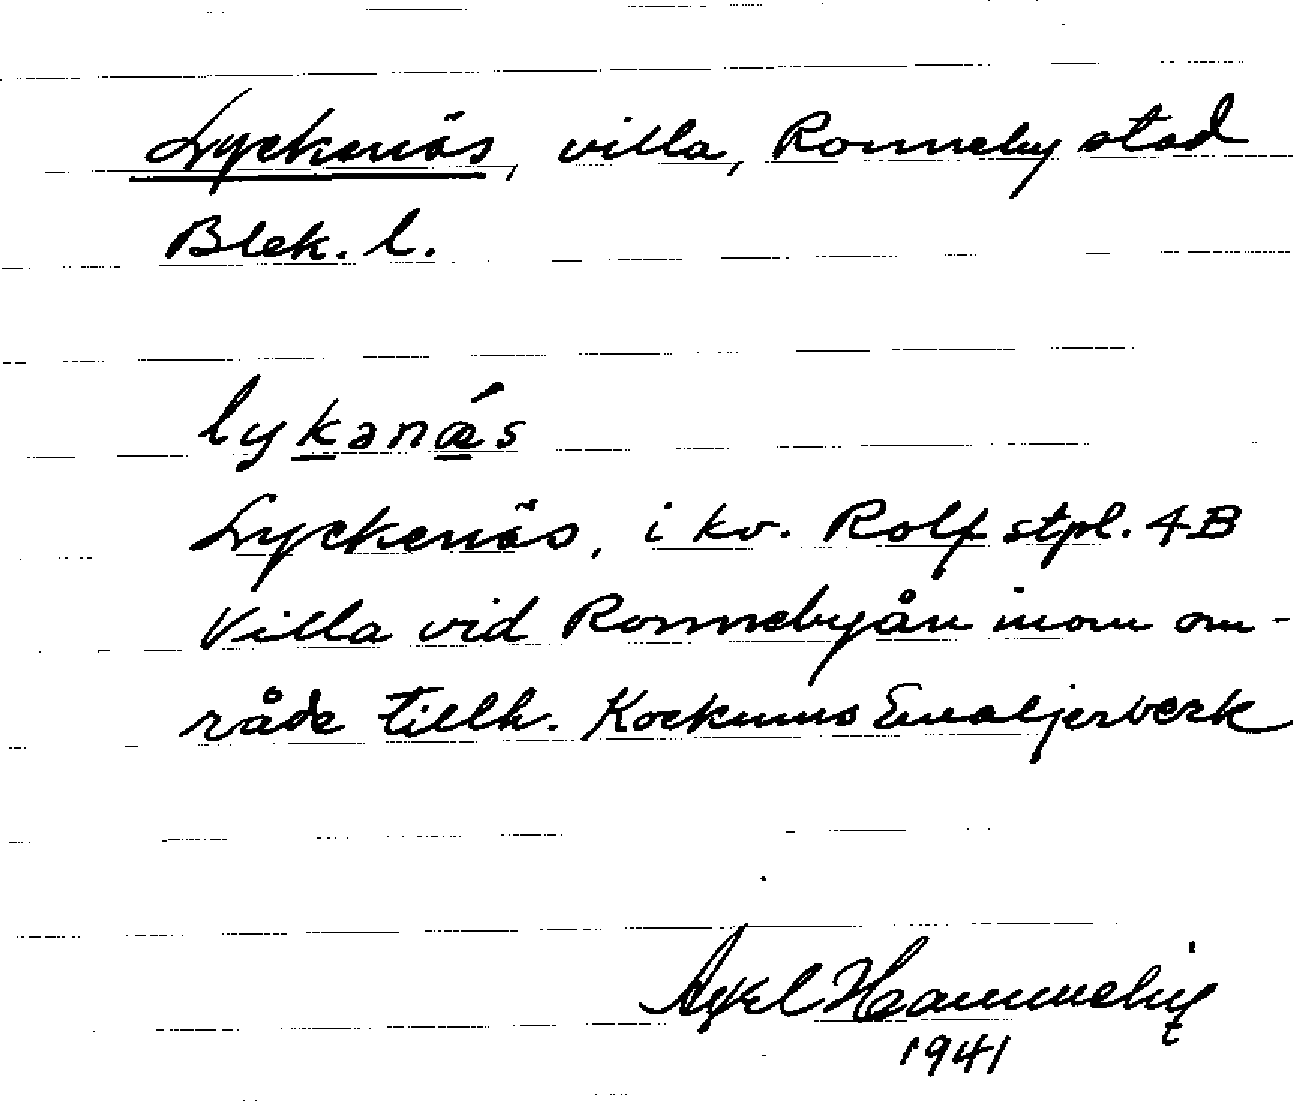 Lyckenäs, villa, Ronneby stad
Blek. l.
lykanǽs
Lyckenäs, i kv. Rolf stpl. 4B
Villa vid Ronnebyån inom om-
råde tillh. Kockums Emaljerverk
Axel
1941